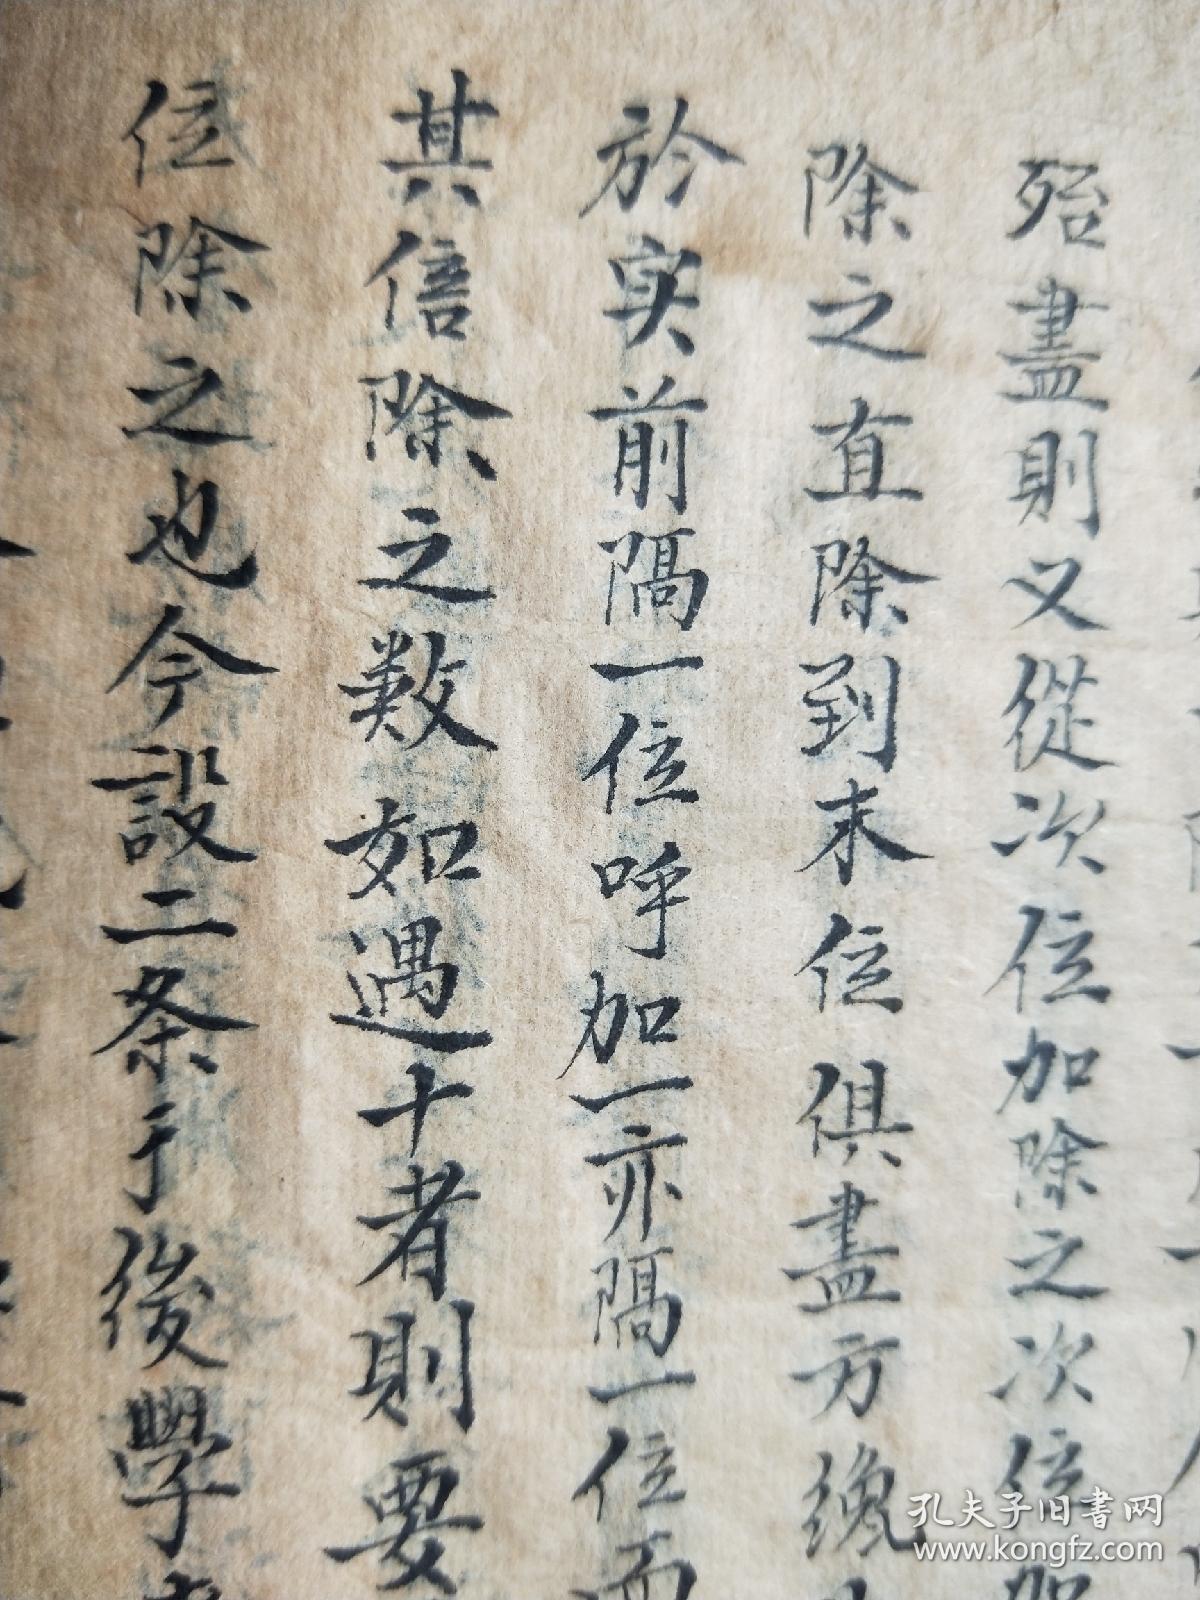 殆盡則又從次位加除之次次位加
除之直除到末位俱盡方纔
於实前隔一位呼加一亦隔一位而
其倍除之数如遇十者則要
位除之也今設二条于後學
孔夫子旧书网
www.kongfz.com